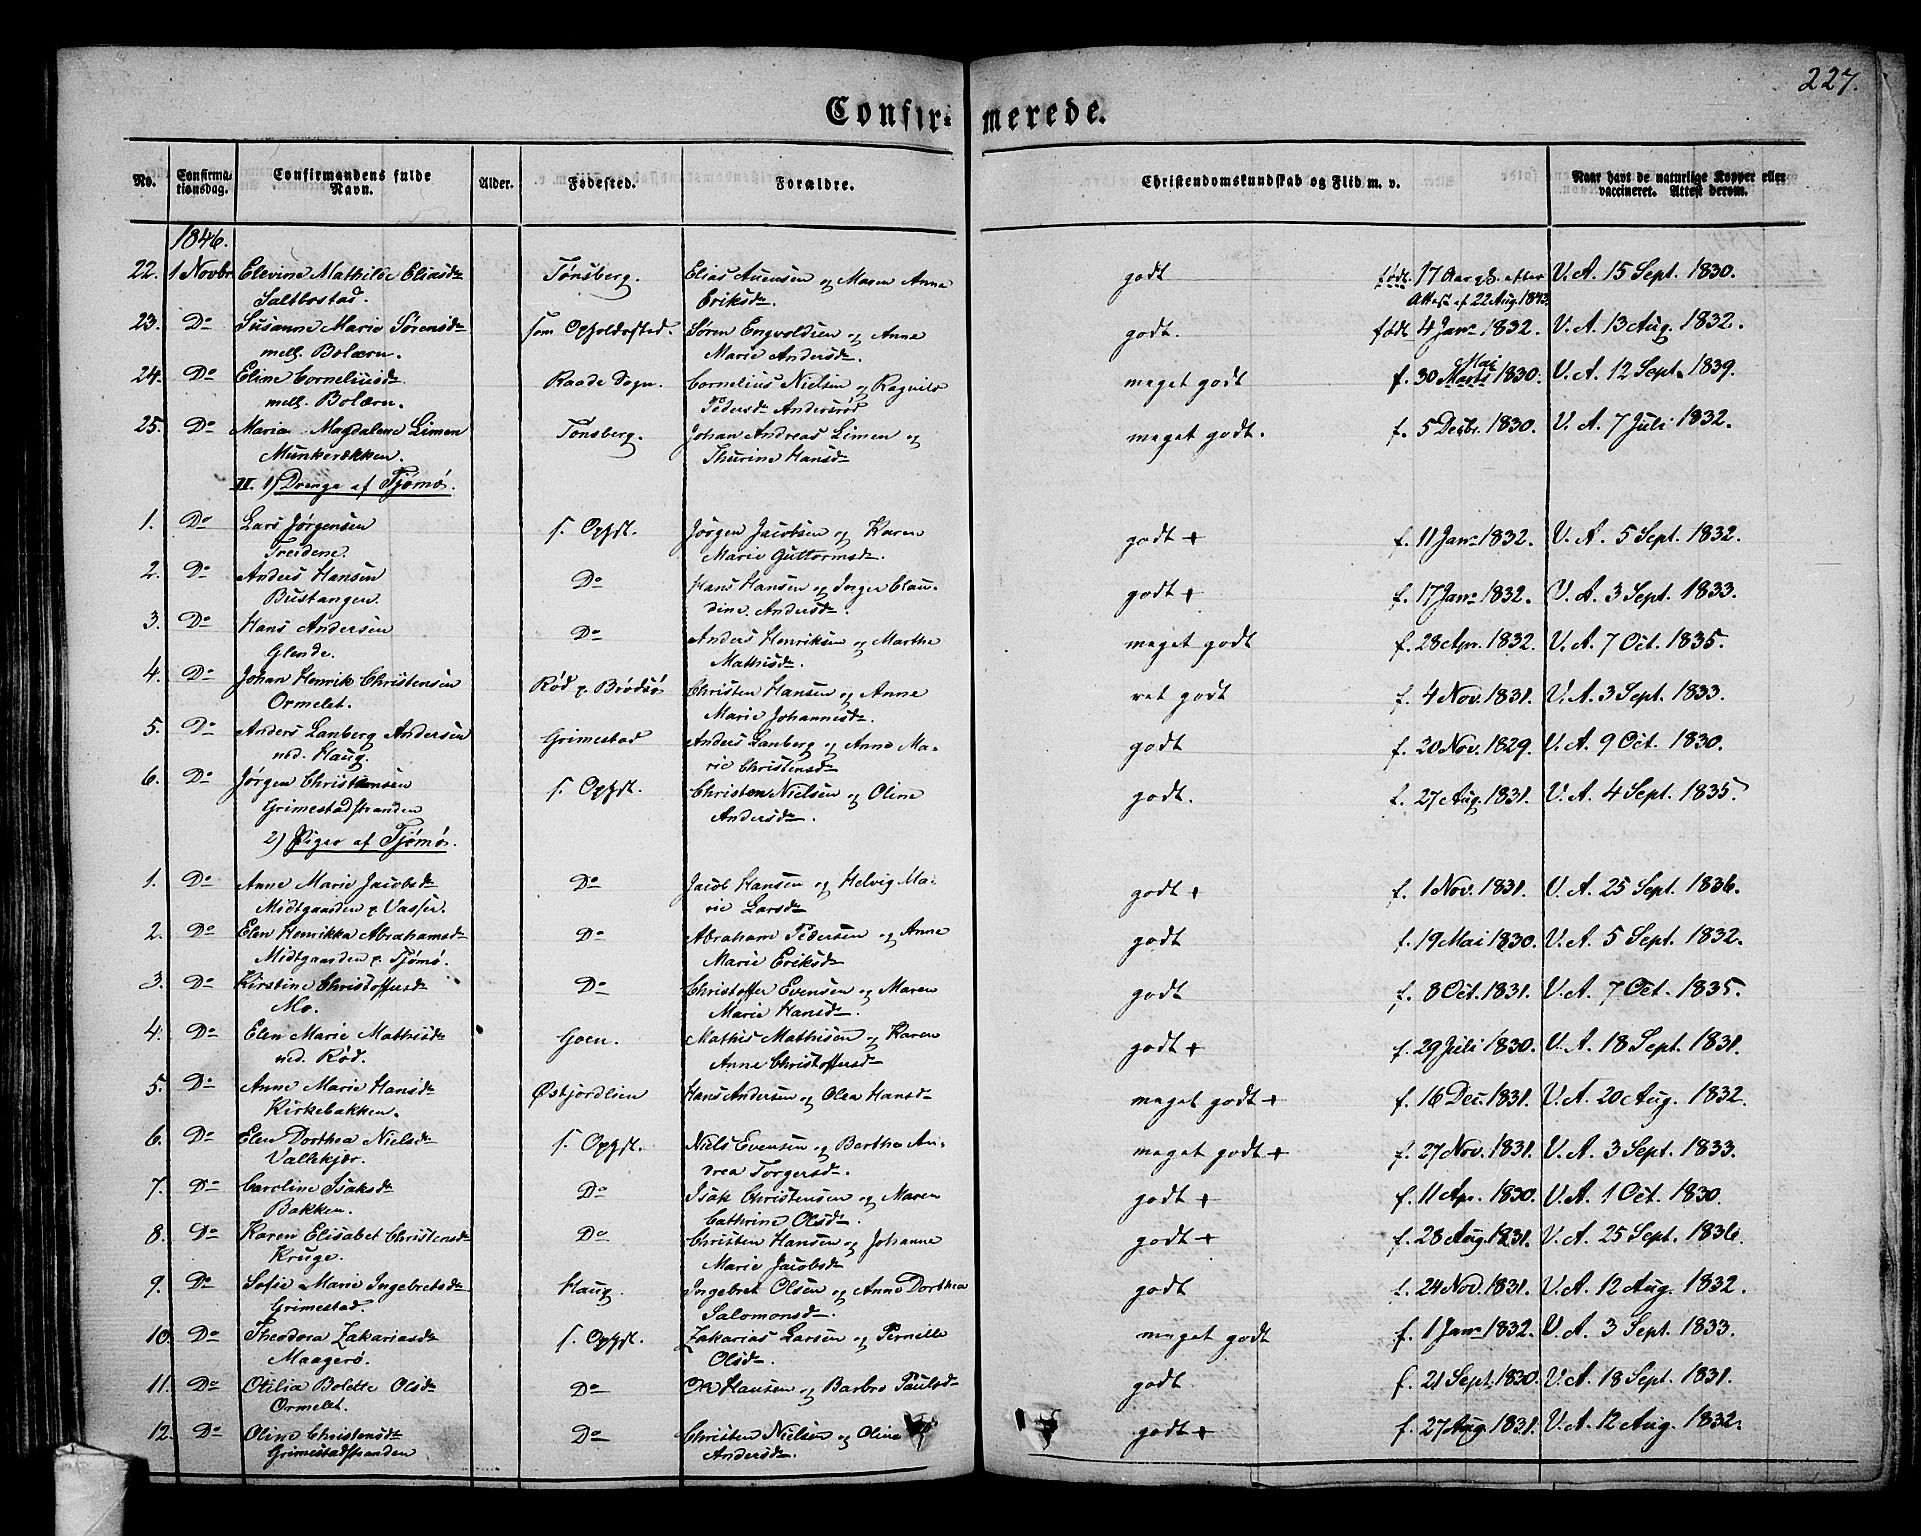 227.
Confirmerede.
No. Confirmationsdag. Confirmandens fulde Navn. Alder. Fødested. Forældre. Christendomskundskab og Flid m. v. Naar havt de naturlige Kopper eller vaccineret. Attest derom.
1846.
22. 1 Novbr Elevine Mathilde Eliasd. Tønsberg. Elias Auensen og Maren Anne godt født 17 Aar gl. efter V. A. 15 Sept. 1830.
Saltbostad. Eriksd. Attest af 22 Aug. 1843
23. Do Susanne Marie Sørensd. som Opholdssted. Søren Engvoldsen og Anne godt. født 4 Jan. 1832. V. A. 13 Aug. 1832.
mell. Bolærn. Marie Andersd.
24. Do Eline Corneliusd. Raade Sogn. Cornelius Nielsen og Ragnild meget godt f. 30 Marts Mai 1830. V. A. 12 Sept. 1839.
mell. Bolærn. Pedersd. Andersrød
25. Do Maria Magdalene Limen Tønsberg. Johan Andreas Limen og meget godt. f. 5 Decbr. 1830. V. A. 7 Juli 1832.
Munkerækken. Thurine Hansd.
II. 1) Drenge af Tjømø.
1. Do Lars Jørgensen s. Ophst. Jørgen Jacobsen og Karen godt + f. 11 Jan. 1832. V. A. 5 Sept. 1832.
Treidene. Marie Guttormsd.
2. Do Anders Hansen Do Hans Hansen og Inger Clau- godt + f. 17 Jan. 1832. V. A. 3 Sept. 1833.
Bustangen. dine Andersd.
3. Do Hans Andersen Do Anders Henriksen og Marthe meget godt f. 28 Apr. 1832. V. A. 7 Oct. 1835.
Glende. Mathisd.
4. Do Johan Henrik Christensen Rød p. Brødsø Christen Hansen og Anne ret godt f. 4 Nov. 1831. V. A. 3 Sept. 1833.
Ormelet. Marie Johannesd.
5. Do Anders Lanberg Andersen Grimestad Anders Lanberg og Anne Ma- godt f. 20 Nov. 1829. V. A. 9 Oct. 1830.
ned. Haug. rie Christensd.
6. Do Jørgen Christensen s. Ophst. Christen Nielsen og Oline godt. f. 27 Aug. 1831. V. A. 4 Sept. 1835.
Grimestadstranden Andersd.
2) Piger af Tjømø.
1. Do Anne Marie Jacobsd. Do Jacob Hansen og Helvig Ma- godt + f. 1 Nov. 1831. V. A. 25 Sept. 1836.
Midtgaarden p. Vasser. rie Larsd.
2. Do Elen Henrikka Abrahamsd. Do Abraham Pedersen og Anne godt f. 19 Mai 1830. V. A. 5 Sept. 1832.
Midtgaarden p. Tjømø. Marie Eriksd.
3. Do Kirstine Christoffersd. Do Christoffer Evensen og Maren godt f. 8 Oct. 1831. V. A. 7 Oct. 1835.
Mo. Marie Hansd.
4. Do Elen Marie Mathisd. Goen. Mathis Mathisen og Karen godt + f. 29 Juli 1830. V. A. 18 Sept. 1831.
ned. Rød. Anne Christoffersd.
5. Do Anne Marie Hansd. Østjordlien Hans Andersen og Olea Hansd. meget godt + f. 16 Dec. 1831. V. A. 20 Aug. 1832.
Kirkebakken.
6. Do Elen Dorthea Nielsd. s. Ophst. Niels Evensen og Berthe An- meget godt + f. 27 Nov. 1831. V. A. 3 Sept. 1833.
Valhkjær. drea Torgersd.
7. Do Caroline Isaksd. Do Isak Christensen og Maren godt + f. 11 Apr. 1830. V. A. 1 Oct. 1830.
Bakken. Cathrine Olsd.
8. Do Karen Elisabet Christensd. Do Christen Hansen og Johanne godt + f. 28 Aug. 1831. V. A. 25 Sept. 1836.
Kruge. Marie Jacobsd.
9. Do Sofie Marie Ingebretsd. Haug. Ingebret Olsen og Anne Dorthea godt f. 24 Nov. 1831. V. A. 12 Aug. 1832.
Grimestad. Salomonsd.
10. Do Theodora Zakariasd. s. Ophst. Zakarias Larsen og Pernille meget godt f. 1 Jan. 1832. V. A. 3 Sept. 1833.
Maagerø. Olsd.
11. Do Otilia Bolette Olsd. Do Ole Hansen og Barbro Paulsd. godt f. 21 Sept. 1830. V. A. 18 Sept. 1831.
Ormelet.
12. Do Oline Christensd. Do Christen Nielsen og Oline godt + f. 27 Aug. 1831. V. A. 12 Aug. 1832.
Grimestadstranden Andersd.